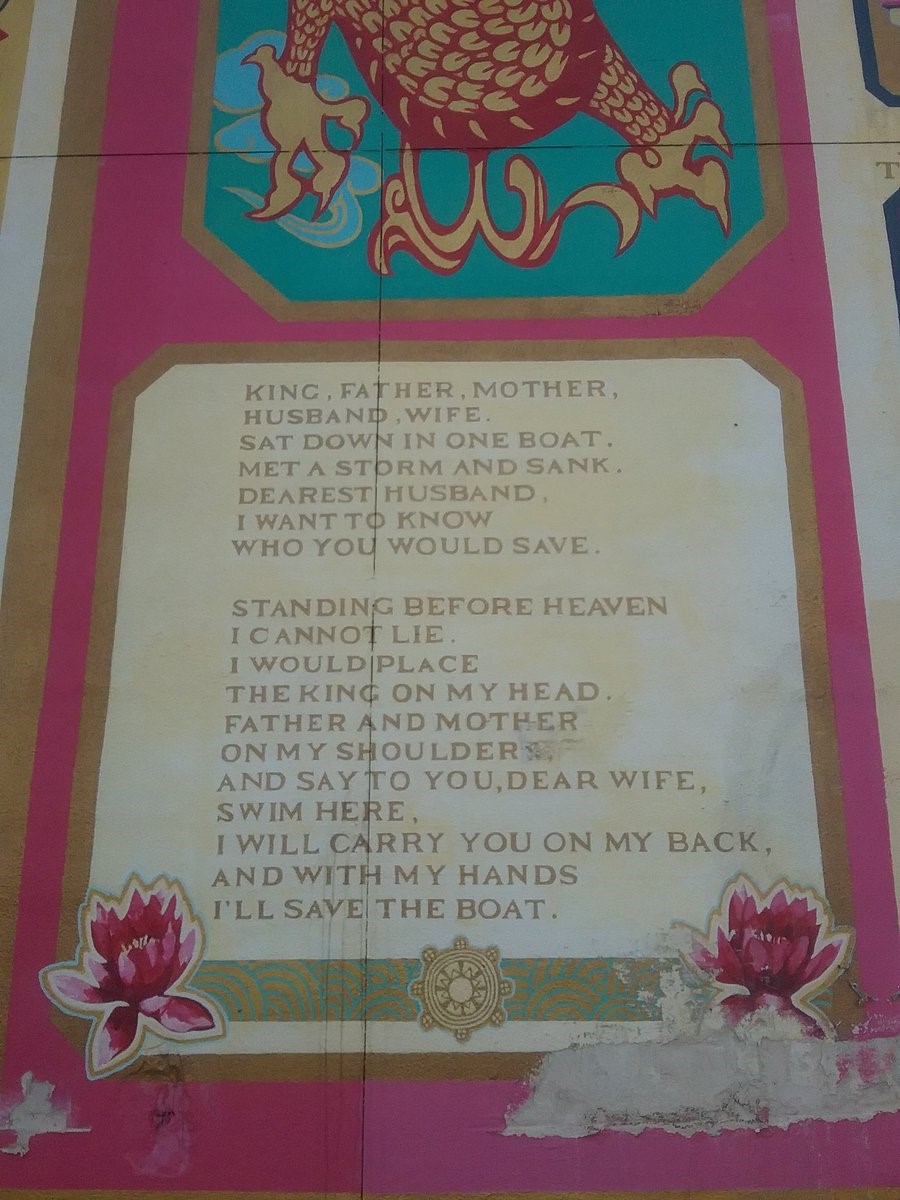 KING, FATHER, MOTHER,
HUSBAND, WIFE.
SAT DOWN IN ONE BOAT.
MET A STORM AND SANK.
DEAREST HUSBAND,
I WANT TO KNOW
WHO YOU WOULD SAVE.
STANDING BEFORE HEAVEN
I CANNOT LIE.
I WOULD PLACE
THE KING ON MY HEAD.
FATHER AND MOTHER
ON MY SHOULDER
AND SAY TO YOU, DEAR WIFE,
SWIM HERE,
I WILL CARRY YOU ON MY BACK,
AND WITH MY HANDS
I'LL SAVE THE BOAT.